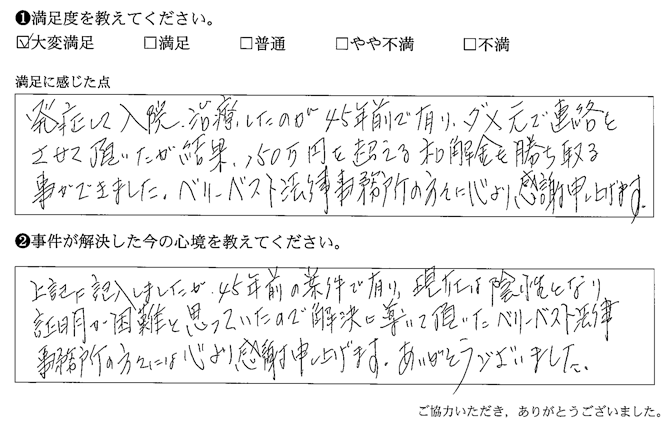 ❶満足度を教えてください。
☑大変満足 □満足 □普通 □やや不満 □不満
満足に感じた点
発症して入院、治療したのが45年前で有り、ダメ元で連絡を
させて頂いたが結果、150万円を超える和解金を勝ち取る
事ができました。ベリーベスト法律事務所の方々に心より感謝申し上げます。
❷事件が解決した今の心境を教えてください。
上記に記入しましたが、45年前の案件で有り、現在は陰性となり
証明が困難と思っていたので解決に導いて頂いたベリーベスト法律
事務所の方々には心より感謝申し上げます。ありがとうございました。
ご協力いただき，ありがとうございました。